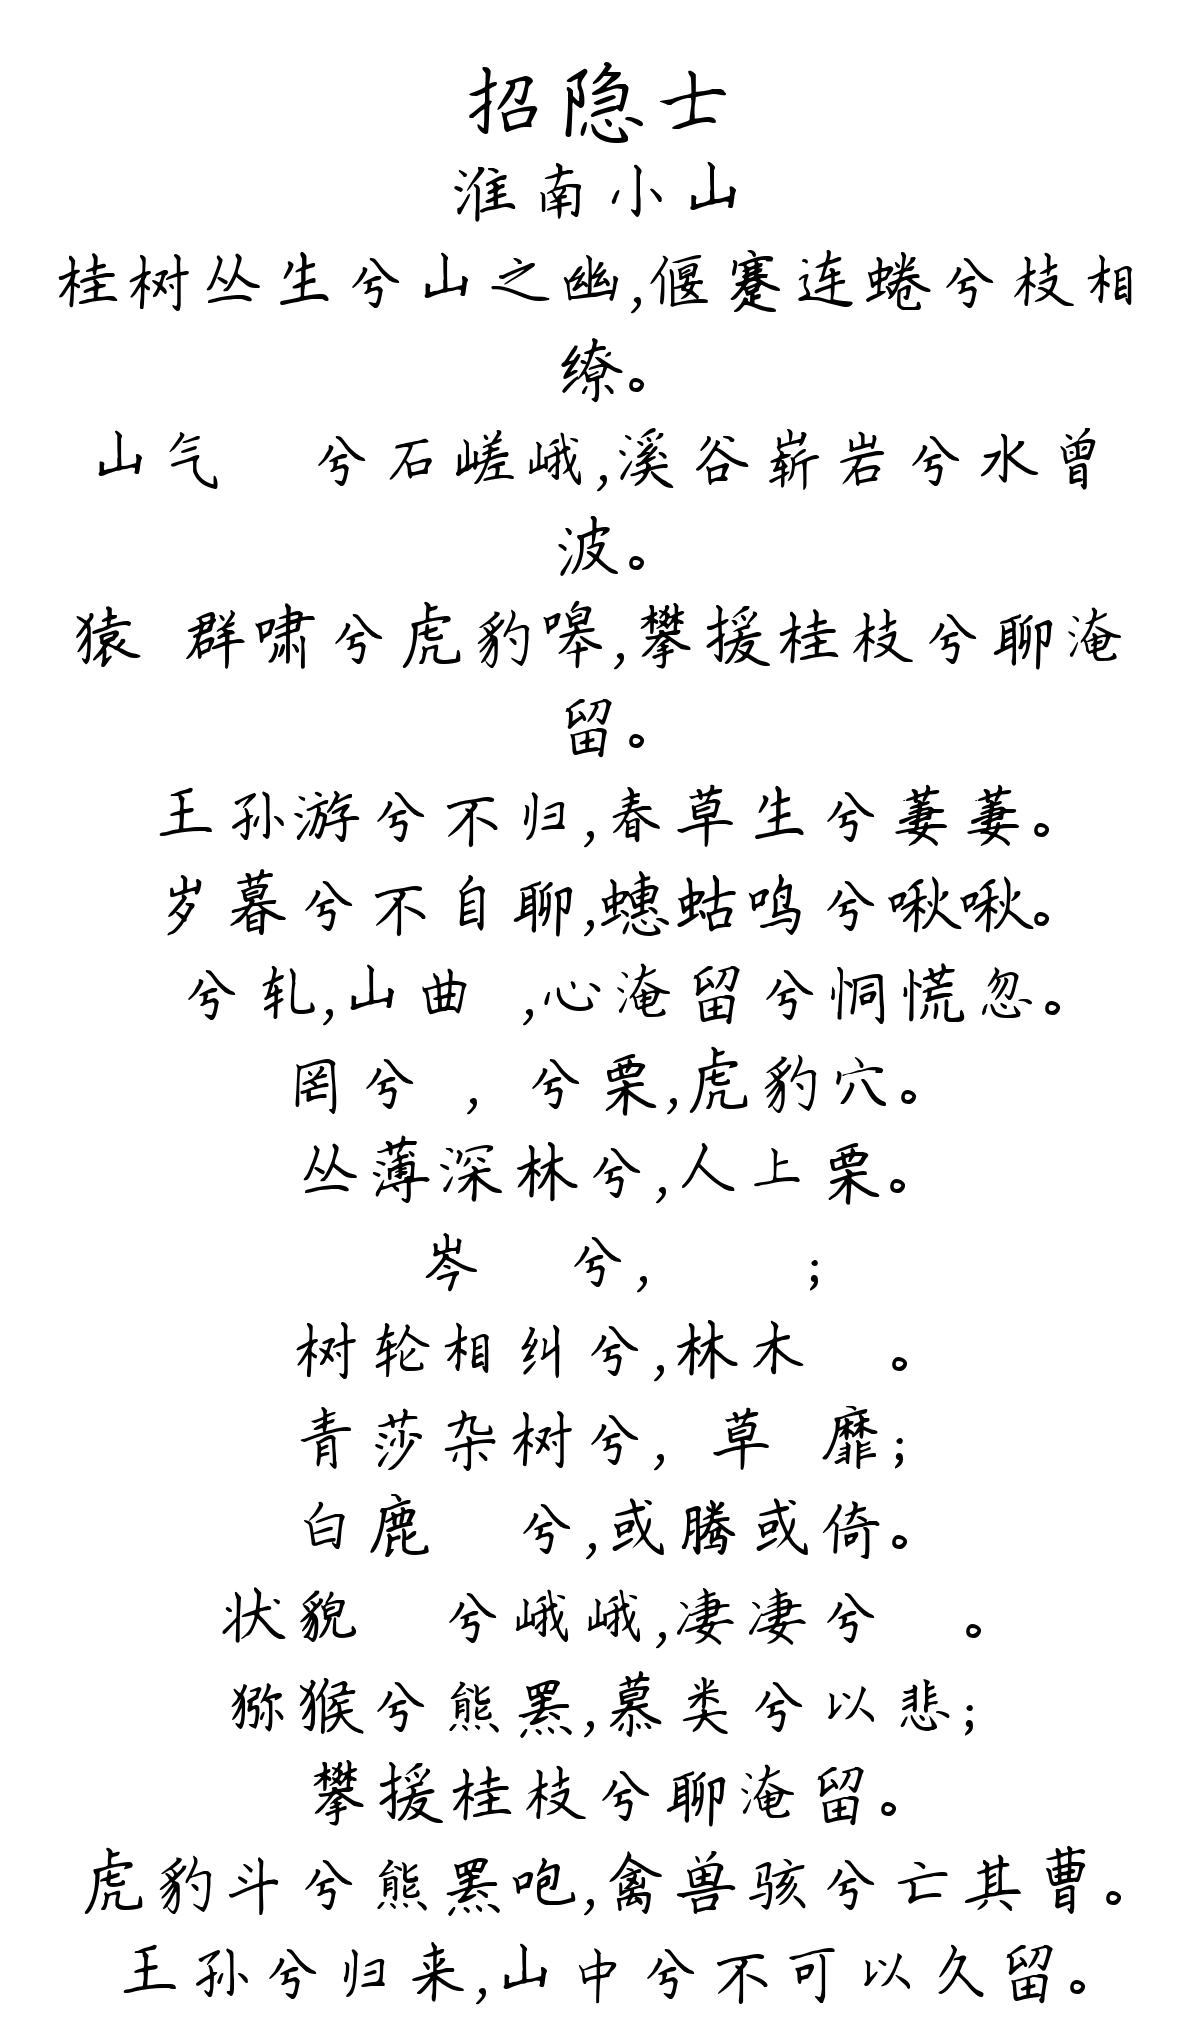 招隐士
淮南小山
桂树丛生兮山之幽,偃蹇连蜷兮枝相
缭。
山气 兮石嵯峨,溪谷崭岩兮水曾
波。
猿 群啸兮虎豹嗥,攀援桂枝兮聊淹
留。
王孙游兮不归,春草生兮萋萋。
岁暮兮不自聊,蟪蛄鸣兮啾啾。
兮轧,山曲 ,心淹留兮恫慌忽。
罔兮 , 兮栗,虎豹穴。
丛薄深林兮,人上栗。
岑 兮, ;
树轮相纠兮,林木 。
青莎杂树兮, 草 靡;
白鹿 兮,或腾或倚。
状貌 兮峨峨,凄凄兮 。
猕猴兮熊罴,慕类兮以悲;
攀援桂枝兮聊淹留。
虎豹斗兮熊罴咆,禽兽骇兮亡其曹。
王孙兮归来,山中兮不可以久留。